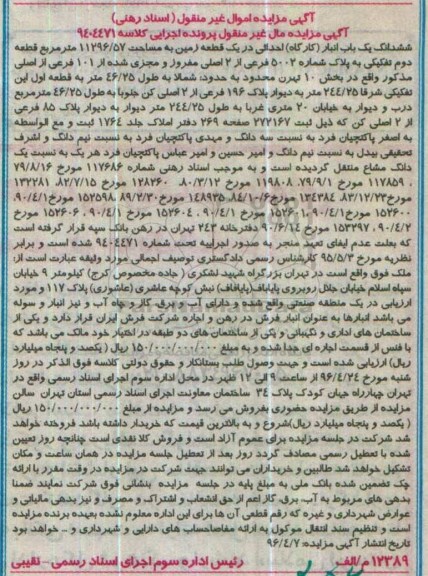 آگهی مزایده اموال غیر منقول (اسناد رهنی)
آگهی مزایده مال غیر منقول پرونده اجرایی کلاسه ۹۴۰۴۴۷۱
ششدانگ یک باب انبار (کارگاه) احداثی در یک قطعه زمین به مساحت ۱۱۲۹۶/۵۷ مترمربع قطعه
دوم تفکیکی به پلاک شماره ۵۰۰۲ فرعی از ۲ اصلی مفروز و مجزی شده از ۱۰۱ فرعی از اصلی
مذکور واقع در بخش ۱۰ تهران محدود به حدود: شمالا به طول ۴۶/۲۵ متر به قطعه اول این
تفکیکی شرقا ۲۴۴/۲۵ متر به دیوار پلاک ۱۹۶ فرعی از ۲ اصلی کن جنوبا به طول ۴۶/۲۵ مترمربع
درب و دیوار به خیابان ۲۰ متری غربا به طول ۲۴۴/۲۵ متر دیوار به دیوار پلاک ۸۵ فرعی
از ۲ اصلی کن که ذیل ثبت ۲۷۲۱۶۷ صفحه ۲۶۹ دفتر املاک جلد ۱۷۶۴ ثبت و مع الواسطه
به اصغر پاکتچیان فرد به نسبت سه دانگ و مهدی پاکتچیان فرد به نسبت نیم دانگ و اشرف
تحقیقی بیدل به نسبت نیم دانگ و امیر حسین و امیر عباس پاکتچیان فرد هر یک به نسبت یک
دانگ مشاع منتقل گردیده است و به موجب اسناد رهنی شماره ۱۱۷۶۸۶ مورخ ۷۹/۸/۱۶
، ۱۱۷۸۵۹ مورخ ۷۹/۹/۱ ۱۱۹۸۰۸ مورخ ۸۰/۳/۱۲، ۱۲۸۲۶۰ مورخ ۸۲/۷/۱۵، ۱۳۲۲۸۱
مورخ ۸۳/۱۲/۲۳، ۱۳۴۳۸۴ مورخ ۸۴/۱۰/۶، ۱۴۸۹۳۵ مورخ ۸۹/۲/۳۰، ۱۵۲۵۹۸ مورخ ۹۰/۴/۱،
۱۵۲۶۰۰ مورخ ۹۰/۴/۱، ۱۵۲۶۰۱ مورخ ۹۰/۴/۱، ۱۵۲۶۰۴ مورخ ۹۰/۴/۱، ۱۵۲۶۰۶ مورخ
۹۰/۴/۲، ۱۵۳۲۹۷ مورخ ۹۰/۶/۱۴ دفترخانه ۲۴۳ تهران در رهن بانک سپه قرار گرفته است
که بعلت عدم ایفای تعهد منجر به صدور اجراییه تحت شماره ۹۴۰۴۴۷۱ شده است و برابر
نظریه مورخ ۹۵/۵/۳ کارشناس رسمی دادگستری توصیف اجمالی مورد وثیقه عبارت است از:
ملک فوق واقع است در تهران بزرگراه شهید لشکری (جاده مخصوص کرج) کیلومتر ۹ خیابان
سپاه اسلام خیابان جلال روبروی پایاباف(پایافاف) نبش کوچه عاشری (عاشوری) پلاک ۱۱۷ و مورد
ارزیابی در یک منطقه صنعتی واقع شده و دارای آب و برق، گاز و چاه آب و نیز انبار و سوله
می باشد انبارها به عنوان انبار فرش در رهن و اجاره شرکت فرش ایران قرار دارد و یکی از
ساختمان های اداری و نگهبانی و یکی از ساختمان های دو طبقه در اختیار خود مالک می باشد که
با فنس از قسمت اجاره ای جدا شده و به مبلغ ۱۵۰/۰۰۰/۰۰۰/۰۰۰ ریال (یکصد و پنجاه میلیارد
ریال) ارزیابی شده است و جهت وصول طلب بستانکار و حقوق دولتی کلاسه فوق الذکر در روز
شنبه مورخ ۹۶/۴/۲۴ از ساعت ۹ الی ۱۲ ظهر در محل اداره سوم اجرای اسناد رسمی واقع در
تهران چهارراه جهان کودک پلاک ۳۴ ساختمان معاونت اجرای اسناد رسمی استان تهران سالن
مزایده از طریق مزایده حضوری بفروش می رسد و مزایده از مبلغ ۱۵۰/۰۰۰/۰۰۰/۰۰۰ ریال
(یکصد و پنجاه میلیارد ریال)شروع و به بالاترین قیمت که خریدار داشته باشد فروخته خواهد
شد شرکت در جلسه مزایده برای عموم آزاد است و فروش کلا نقدی است چنانچه روز تعیین
شده با تعطیل رسمی مصادف گردد روز بعد از تعطیل جلسه مزایده در همان ساعت و مکان
تشکیل خواهد شد طالبین و خریداران می توانند جهت شرکت در مزایده در وقت مقرر با ارائه
چک تضمین شده بانک ملی به مبلغ پایه در جلسه مزایده بنشانی فوق شرکت نمایند ضمنا
بدهی های مربوط به آب، برق، گاز اعم از حق انشعاب و اشتراک و مصرف و نیز بدهی مالیاتی و
عوارض شهرداری و غیره که رقم قطعی آن ها برای این اداره معلوم نشده بعهده برنده مزایده
است و تنظیم سند انتقال موکول به ارائه مفاصاحساب های دارایی و شهرداری و - خواهد بود
تاریخ انتشار آگهی مزایده: ۹۶/۴/۷
۱۲۳۸۹/م/الف رئیس اداره سوم اجرای اسناد رسمی - نقیبی